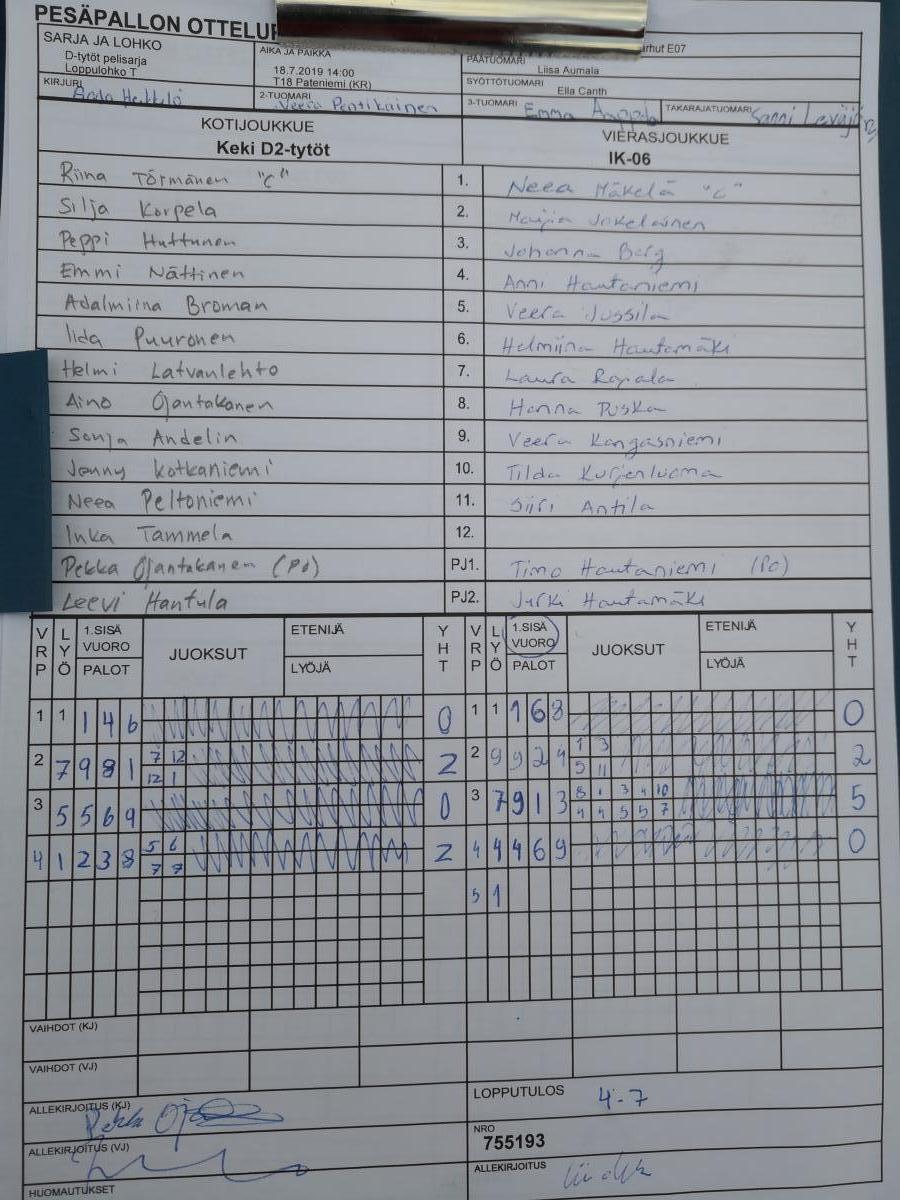 PESÄPALLON OTTELUP
SARJA JA LOHKO
D-tytöt pelisarja
Loppulohko T
AIKA JA PAIKKA
18.7.2019 14:00
T18 Pateniemi (KR)
arhut E07
PÄÄTUOMARI
Liisa Aumala
SYÖTTÖTUOMARI
Ella Canth
KIRJURI
2-TUOMARI Veera Pentikäinen
3-TUOMARI Emma
TAKARAJATUOMARI Sanni
KOTIJOUKKUE VIERASJOUKKUE
Keki D2-tytöt IK-06
Riina Törmänen "C" 1. Neea Mäkelä "C"
Silja Korpela 2. Maija Jokelainen
Peppi Huttunen 3. Johanna Berg
Emmi Nättinen 4. Anni Hautaniemi
Adalmiina Broman 5. Veera Jussila
Iida Puuronen 6. Helmiina Hautamäki
Helmi Latvanlehto 7. Laura Rapala
Aino Ojantakanen 8. Hanna Puska
Sonja Andelin 9. Veera Kangasniemi
Jenny Kotkaniemi 10. Tilda Kurjenluoma
Neea Peltoniemi 11. Siiri Antila
Inka Tammela 12.
Pekka Ojantakanen (PJ) PJ1. Timo Hautaniemi (PJ)
Leevi Hantula PJ2. Jyrki Hautamäki
VRP LYÖ 1.SISÄ VUORO PALOT JUOKSUT ETENIJÄ LYÖJÄ YHT VRP LYÖ 1.SISÄ VUORO PALOT JUOKSUT ETENIJÄ LYÖJÄ YHT
1 1 1 4 6 0 1 1 1 6 8 0
2 7 9 8 1 7 12 2 2 9 9 2 4 1 3 2
12 1 5 11
3 5 5 6 9 0 3 7 9 1 3 8 1 3 4 10 5
4 4 5 5 7
4 1 2 3 8 5 6 2 4 4 4 6 9 0
7 7
5 1
VAIHDOT (KJ)
VAIHDOT (VJ)
ALLEKIRJOITUS (KJ)
LOPPUTULOS 4-7
ALLEKIRJOITUS (VJ)
NRO
755193
HUOMAUTUKSET
ALLEKIRJOITUS